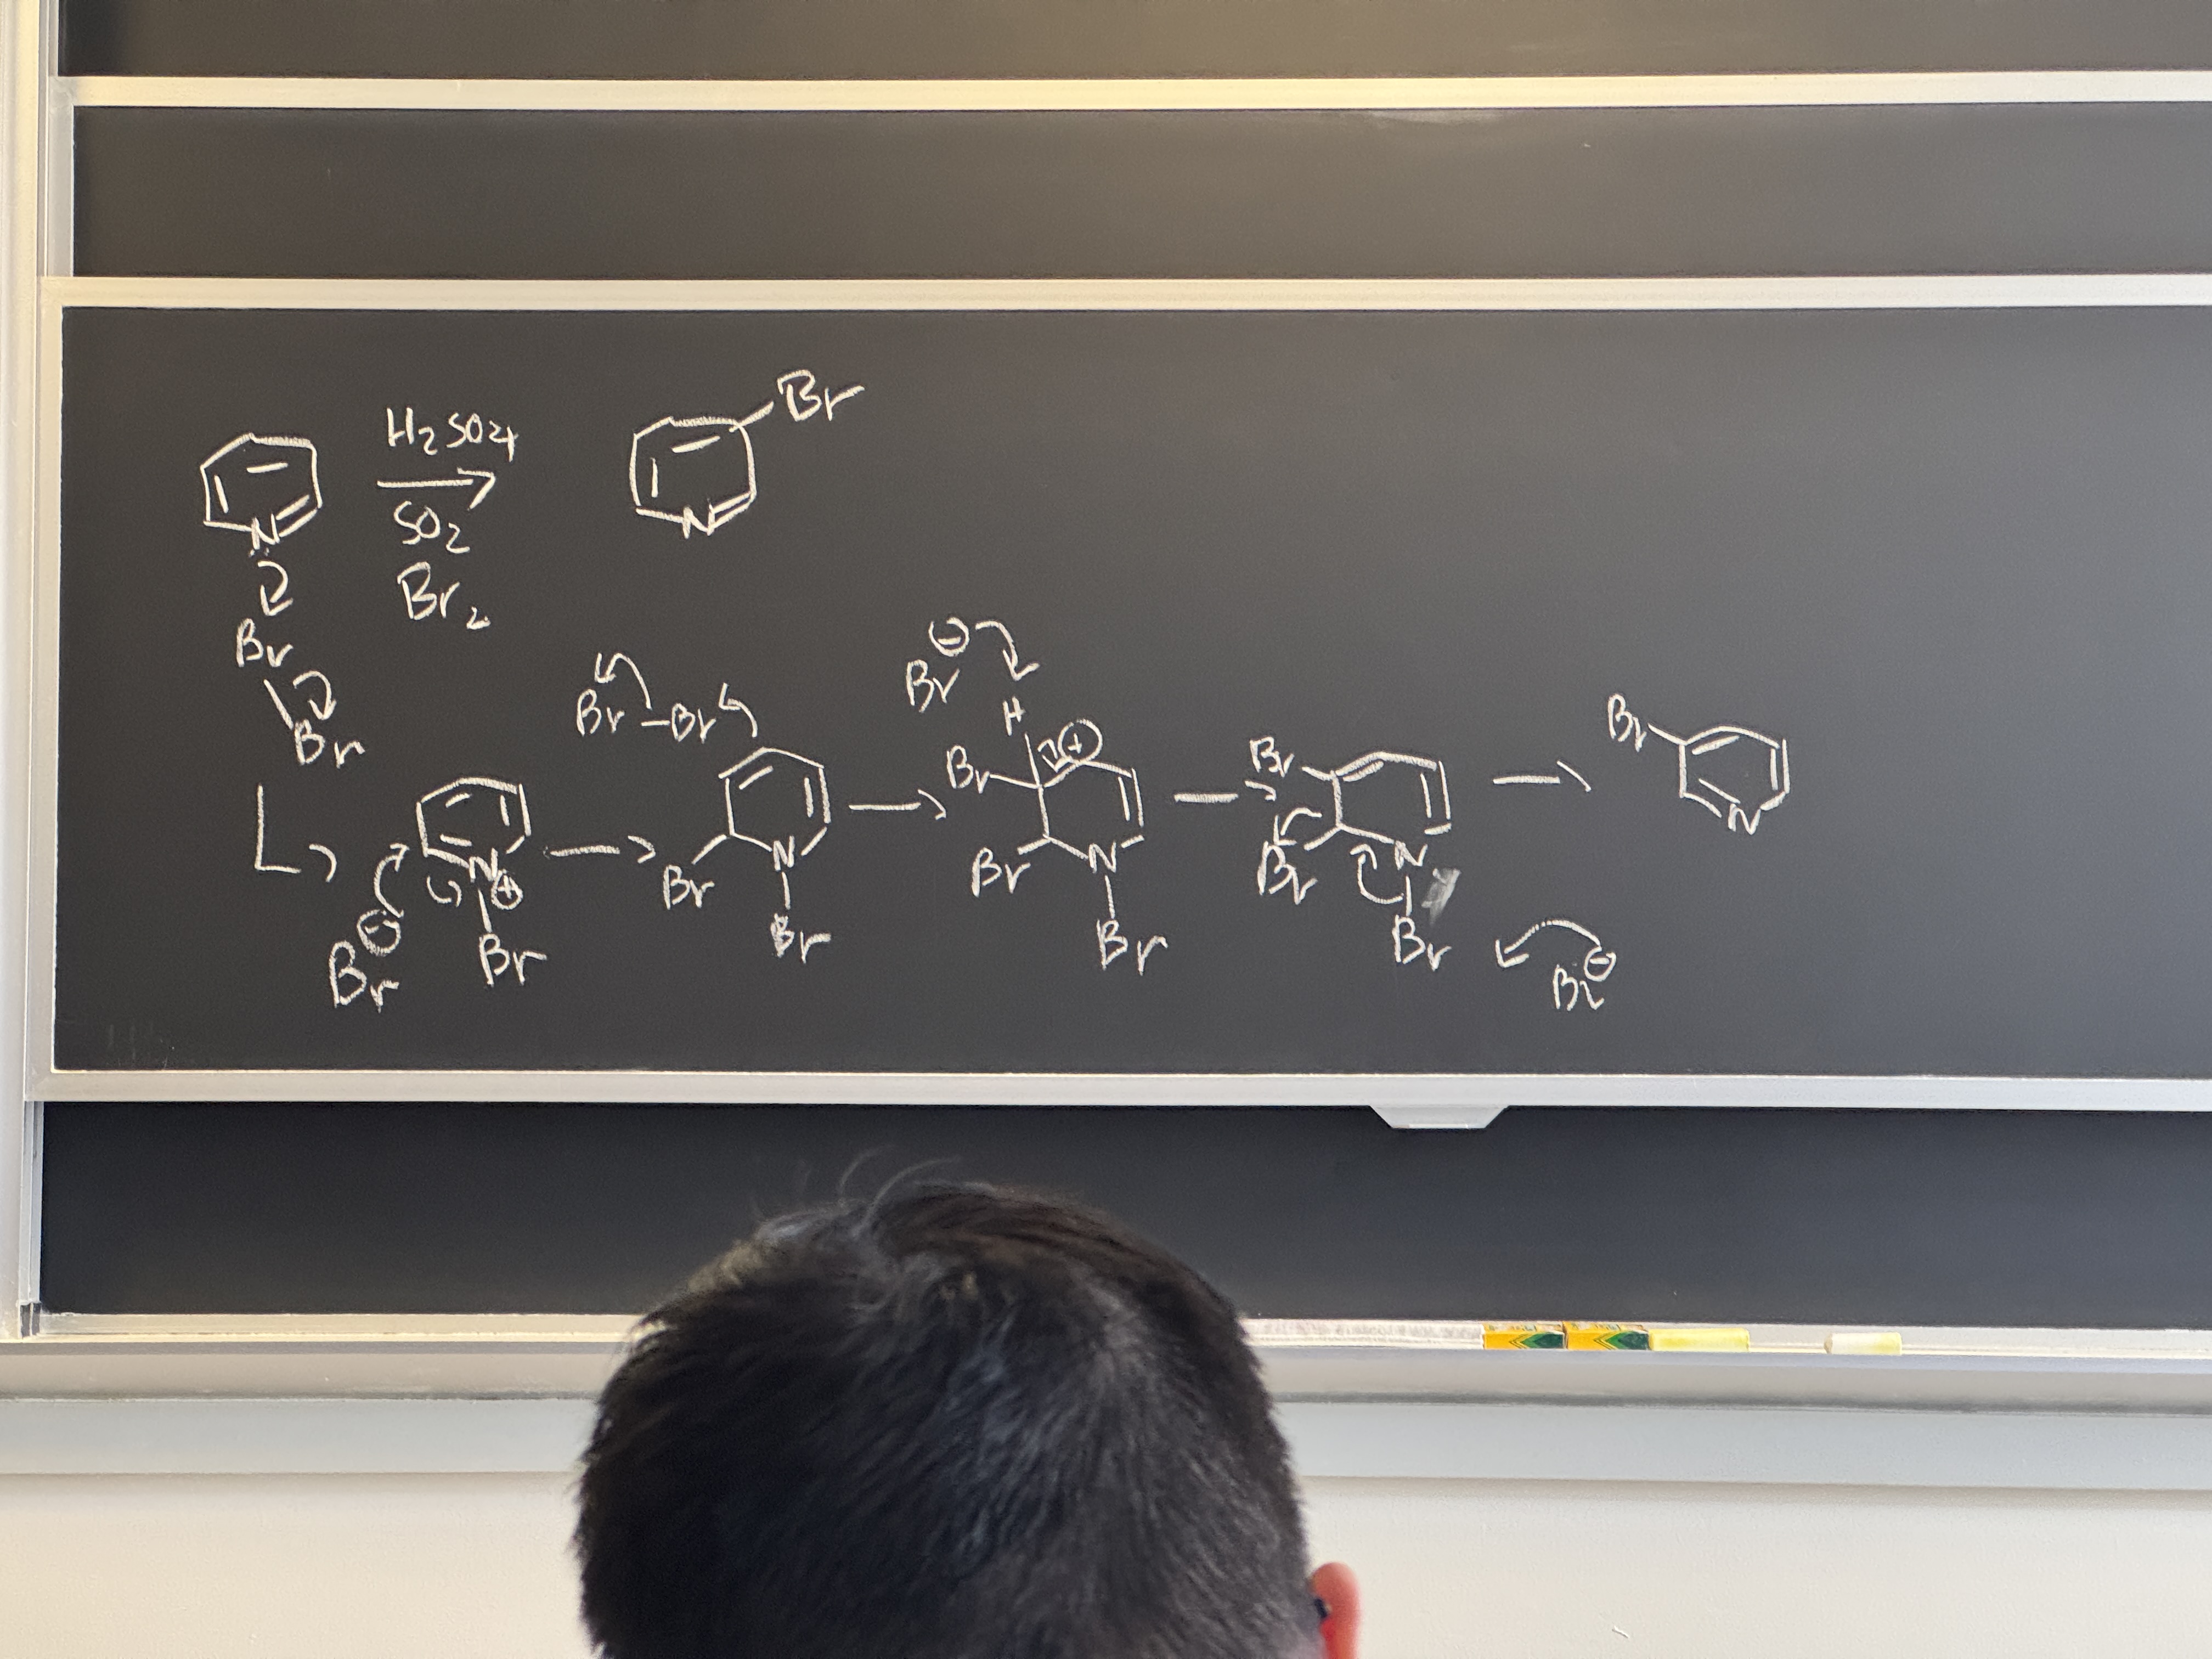 H₂SO₄
SO₂
Br₂
N
Br
Br
N
Br
Br ⊖
N ⊕
Br
Br–Br
Br
N
Br
Br ⊖
H
Br
⊕
Br
N
Br
Br
Br
N
Br
Br ⊖
Br
N